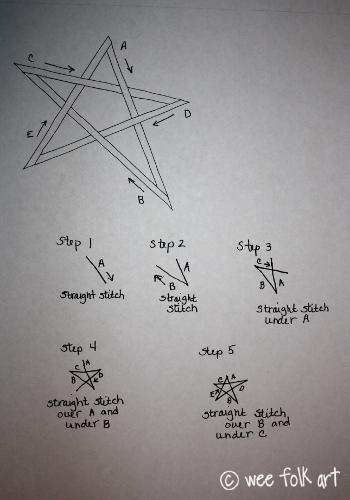 C
A
D
E
B
Step 1
Step 2
Step 3
A
A
B
C
B
A
Straight Stitch
Straight
Stitch
Straight Stitch
under A
Step 4
Step 5
A
C
D
B
C A
D
E
B
Straight Stitch
over A and
under B
Straight Stitch,
over B and
under C
© wee folk art